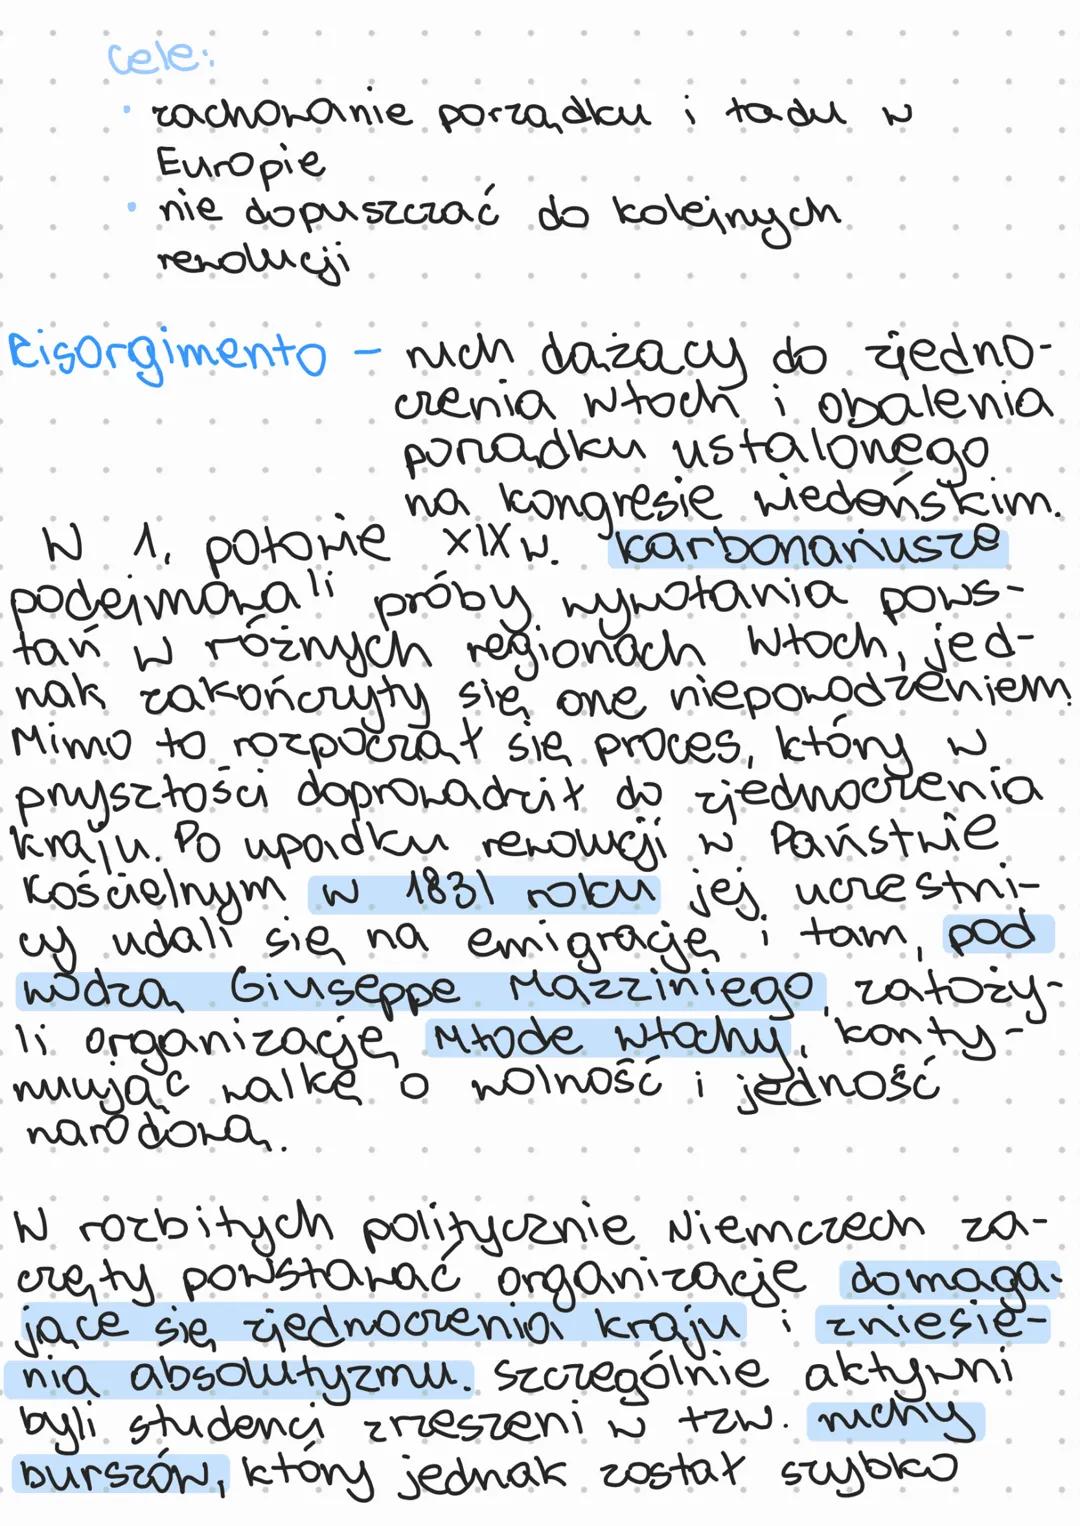 cele:
• zachowanie porządku i ładu w
Europie
• nie dopuszczać do kolejnych
rewolucji
Risorgimento – ruch dążący do zjedno-
czenia Włoch i obalenia
porządku ustalonego
na kongresie wiedeńskim.
W 1. połowie XIX w. karbonariusze
podejmowali próby wywołania pows-
tań w różnych regionach Włoch, jed-
nak zakończyły się one niepowodzeniem.
Mimo to rozpoczął się proces, który w
przyszłości doprowadził do zjednoczenia
kraju. Po upadku rewolucji w Państwie
Kościelnym w 1831 roku jej uczestni-
cy udali się na emigrację i tam, pod
wodzą Giuseppe Mazziniego, założy-
li organizację Młode Włochy, konty-
nuując walkę o wolność i jedność
narodową.
W rozbitych politycznie Niemczech za-
częły powstawać organizacje domaga-
jące się zjednoczenia kraju i zniesie-
nia absolutyzmu. Szczególnie aktywni
byli studenci zrzeszeni w tzw. ruchy
burszów, który jednak został szybko